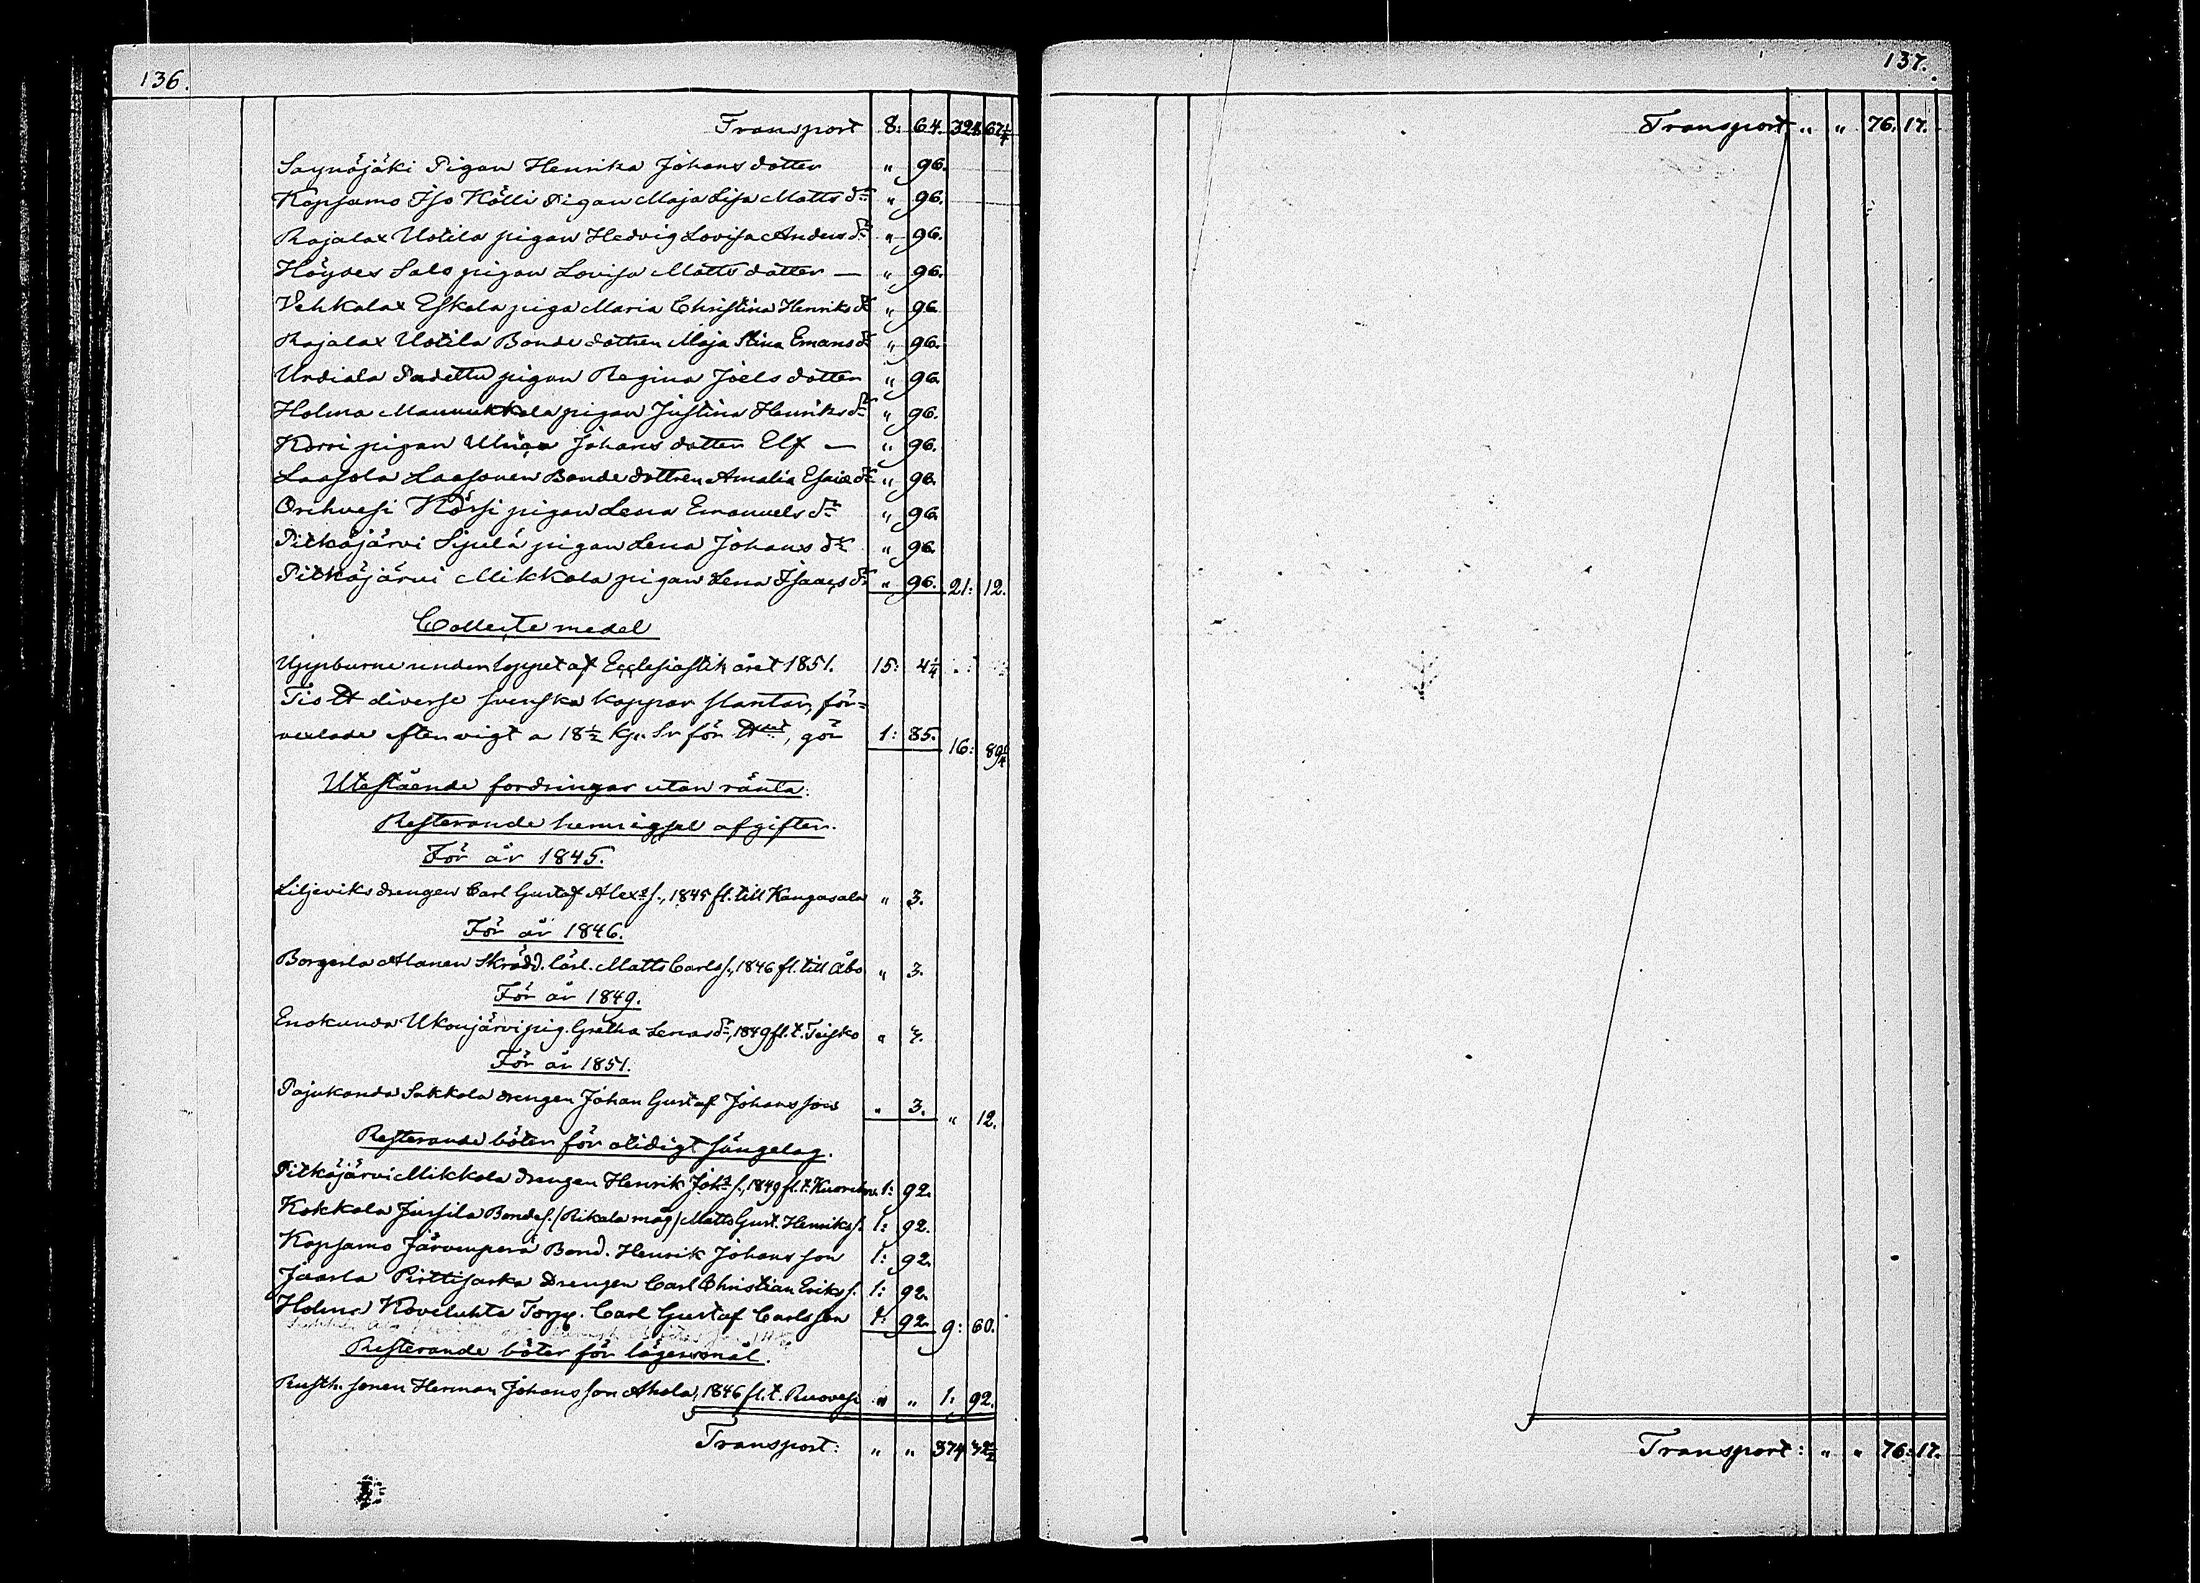 136.
Transport 8: 64. 324. 67 1/4
Saynäjäki Pigan Henrika Johans dotter " 96.
Kopsamo Iso Kölli Pigan Maja Lisa Matts dr " 96.
Rajalax Uotila pigan Hedvig Lovisa Anders dr " 96.
Höydes Salo pigan Lovisa Matts dotter — " 96.
Vehkalax Eskola piga Maria Christina Henriks dr " 96
Rajalax Uotila Bonde dottren Maja Stina Emans dr " 96.
Urdiala pigan Regina Joels dotter " 96.
Holma Mannukkala pigan Justina Henriks dr " 96.
Korri pigan Ulrica Johans dotter Elf — " 96.
Laasola Laasonen Bonde dottren Amalia Esaiæ dr " 96.
Orihvesi Körsi pigan Lena Emanuels dr " 96
Pitkäjärvi Sipilä pigan Lena Johans dr " 96.
Pitkäjärvi Mikkola pigan Lena Isaacs dr " 96. 21: 12.
Collecte medel
Uppburne under loppet af Ecclesiastik året 1851. 15: 4 1/4
Tio ℔ diverse svenska koppar slantar, för-
vexlade efter vigt a 18 1/2 kp. Sr för ℔det, gör 1: 85. 16: 89 1/4
Utestående fordringar utan ränta:
Resterande afgifter.
För år 1845.
Liljeviks drengen Carl Gustaf Alexr s., 1845 fl. till Kangasala " 3.
För år 1846.
Borgerla Alanen Skrädd. lärl. Matts Carls s., 1846 fl. till Åbo " 3.
För år 1849.
Enokunda Ukonjärvi pig. Gretha Lenas dr, 1849 fl. t. Teisko " 3.
För år 1851.
Pajukanda Sakkola drengen Johan Gustaf Johansson " 3. " 12.
Resterande böter för otidigt sängelag.
Pitkäjärvi Mikkola drengen Henrik Johs s., 1849 fl. t. 1: 92.
Kokkola Jussila Bondes. (Rikala måg) Matts Gust. Henriks s. 1: 92.
Kopsamo Järvenperä Bond. Henrik Johansson 1: 92.
Jäärla Pirttisarka Drengen Carl Christian Eriks s. 1: 92.
Holma Koveluhta Torp. Carl Gustaf Carlsson 1: 92. 9: 60.
Resterande böter för lägersmål.
Rusth. sonen Herman Johansson Ahola, 1846 fl. t. Ruovesi " " 1: 92.
Transport: " " 374 32 1/2
137.
Transport " " 76. 17.
Transport: " " 76: 17.